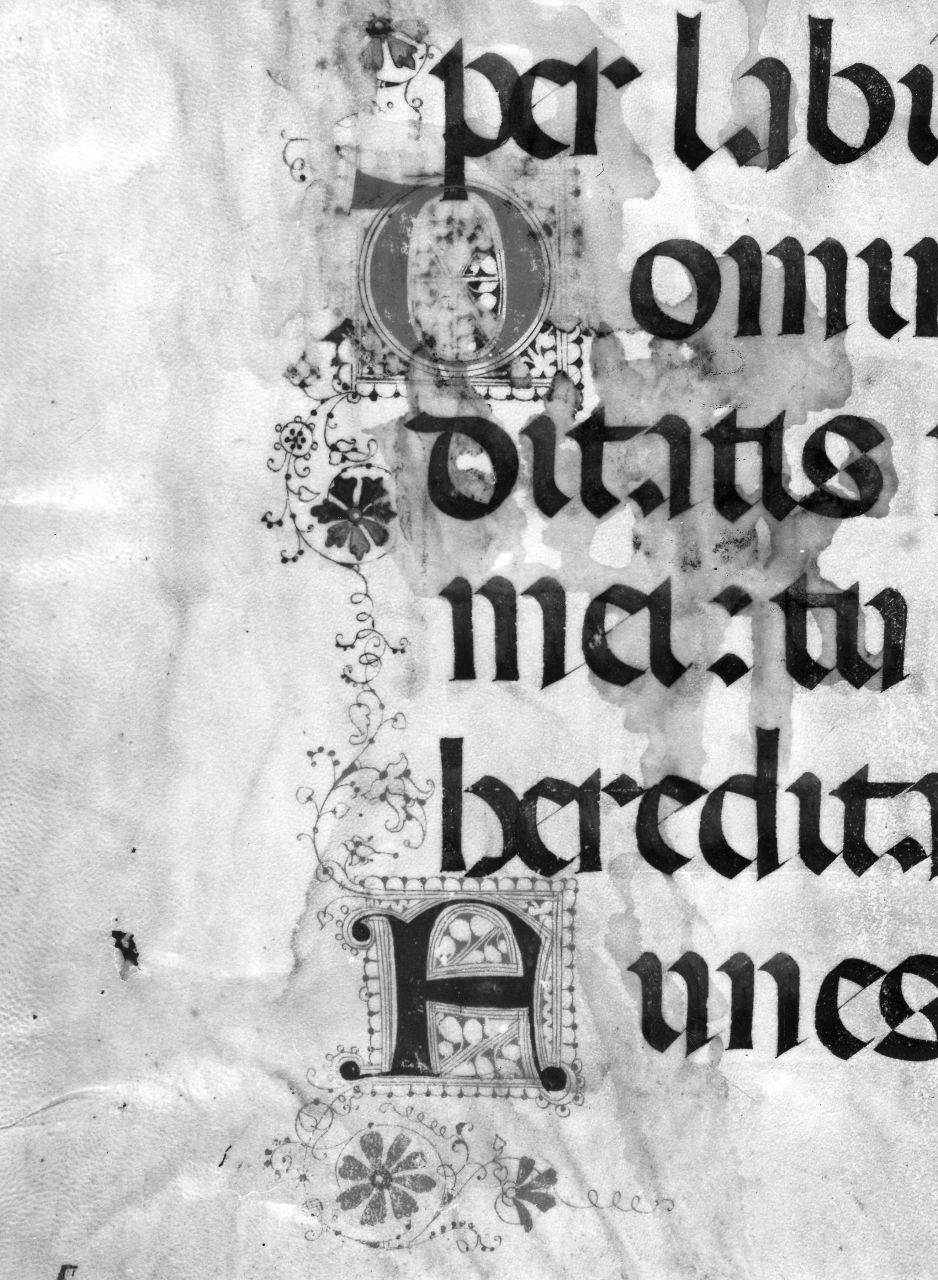 per labi
Domin
ditatis
mei : tu
heredita
Funes